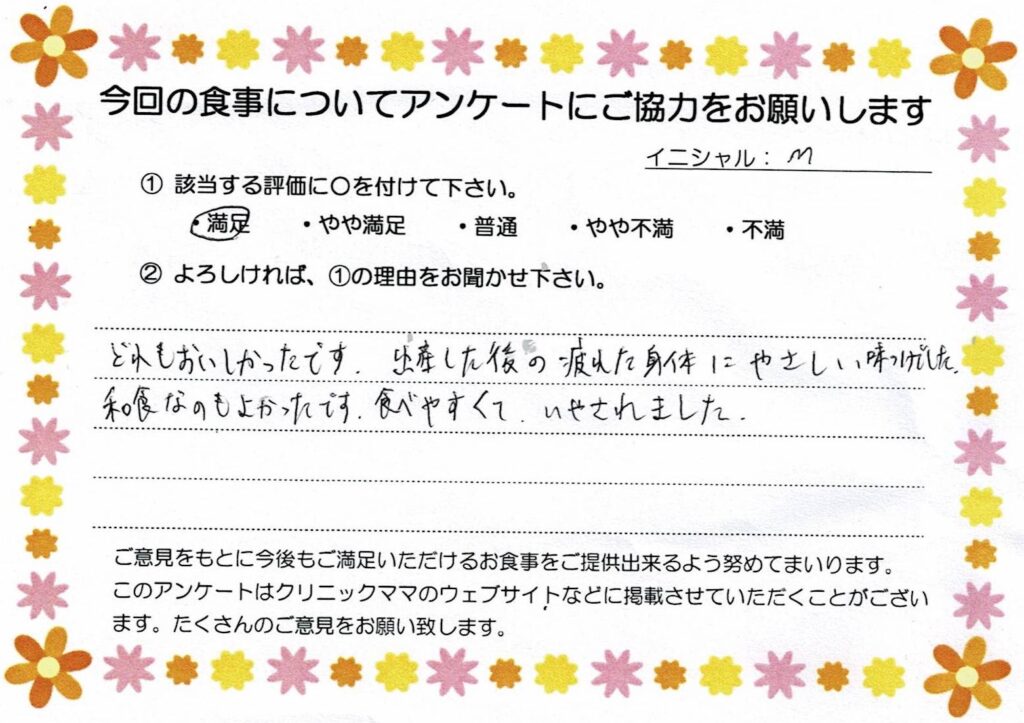 今回の食事についてアンケートにご協力をお願いします
イニシャル： M
① 該当する評価に○を付けて下さい。
・満足 ・やや満足 ・普通 ・やや不満 ・不満
② よろしければ、①の理由をお聞かせ下さい。
どれもおいしかったです. 出産した後の疲れた身体にやさしい味つけでした.
和食なのもよかったです. 食べやすくて. いやされました.
ご意見をもとに今後もご満足いただけるお食事をご提供出来るよう努めてまいります。
このアンケートはクリニックママのウェブサイトなどに掲載させていただくことがござい
ます。たくさんのご意見をお願い致します。